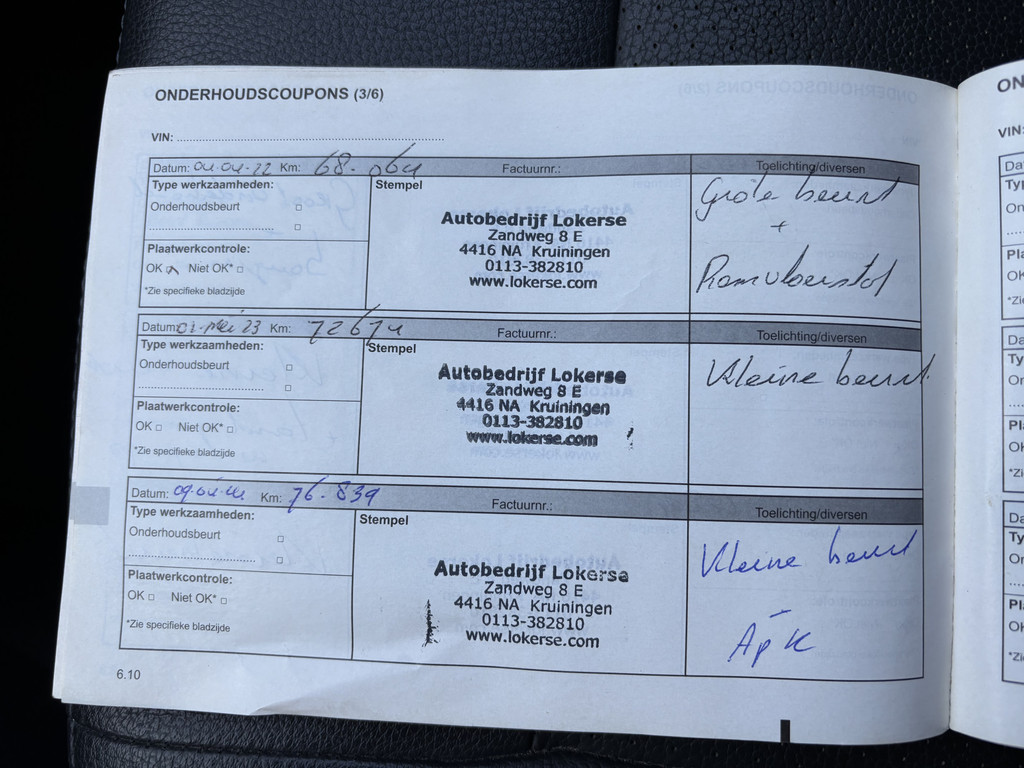 ONDERHOUDSCOUPONS (3/6)
VIN:
Datum: 04-04-22 Km: 68-064 Factuurnr.: Toelichting/diversen
Type werkzaamheden:
Stempel
Onderhoudsbeurt
Plaatwerkcontrole:
OK Niet OK*
*Zie specifieke bladzijde
Autobedrijf Lokerse
Zandweg 8 E
4416 NA Kruiningen
0113-382810
www.lokerse.com
Grote beurt
+
Remvloeistof
Datum: 01-Mei 23 Km: 72674 Factuurnr.: Toelichting/diversen
Type werkzaamheden:
Stempel
Onderhoudsbeurt
Plaatwerkcontrole:
OK Niet OK*
*Zie specifieke bladzijde
Autobedrijf Lokerse
Zandweg 8 E
4416 NA Kruiningen
0113-382810
www.lokerse.com
Kleine beurt
Datum: Km: 76-839 Factuurnr.: Toelichting/diversen
Type werkzaamheden:
Stempel
Onderhoudsbeurt
Plaatwerkcontrole:
OK Niet OK*
*Zie specifieke bladzijde
Autobedrijf Lokerse
Zandweg 8 E
4416 NA Kruiningen
0113-382810
www.lokerse.com
Kleine beurt
ApK
6.10
ON
VIN: